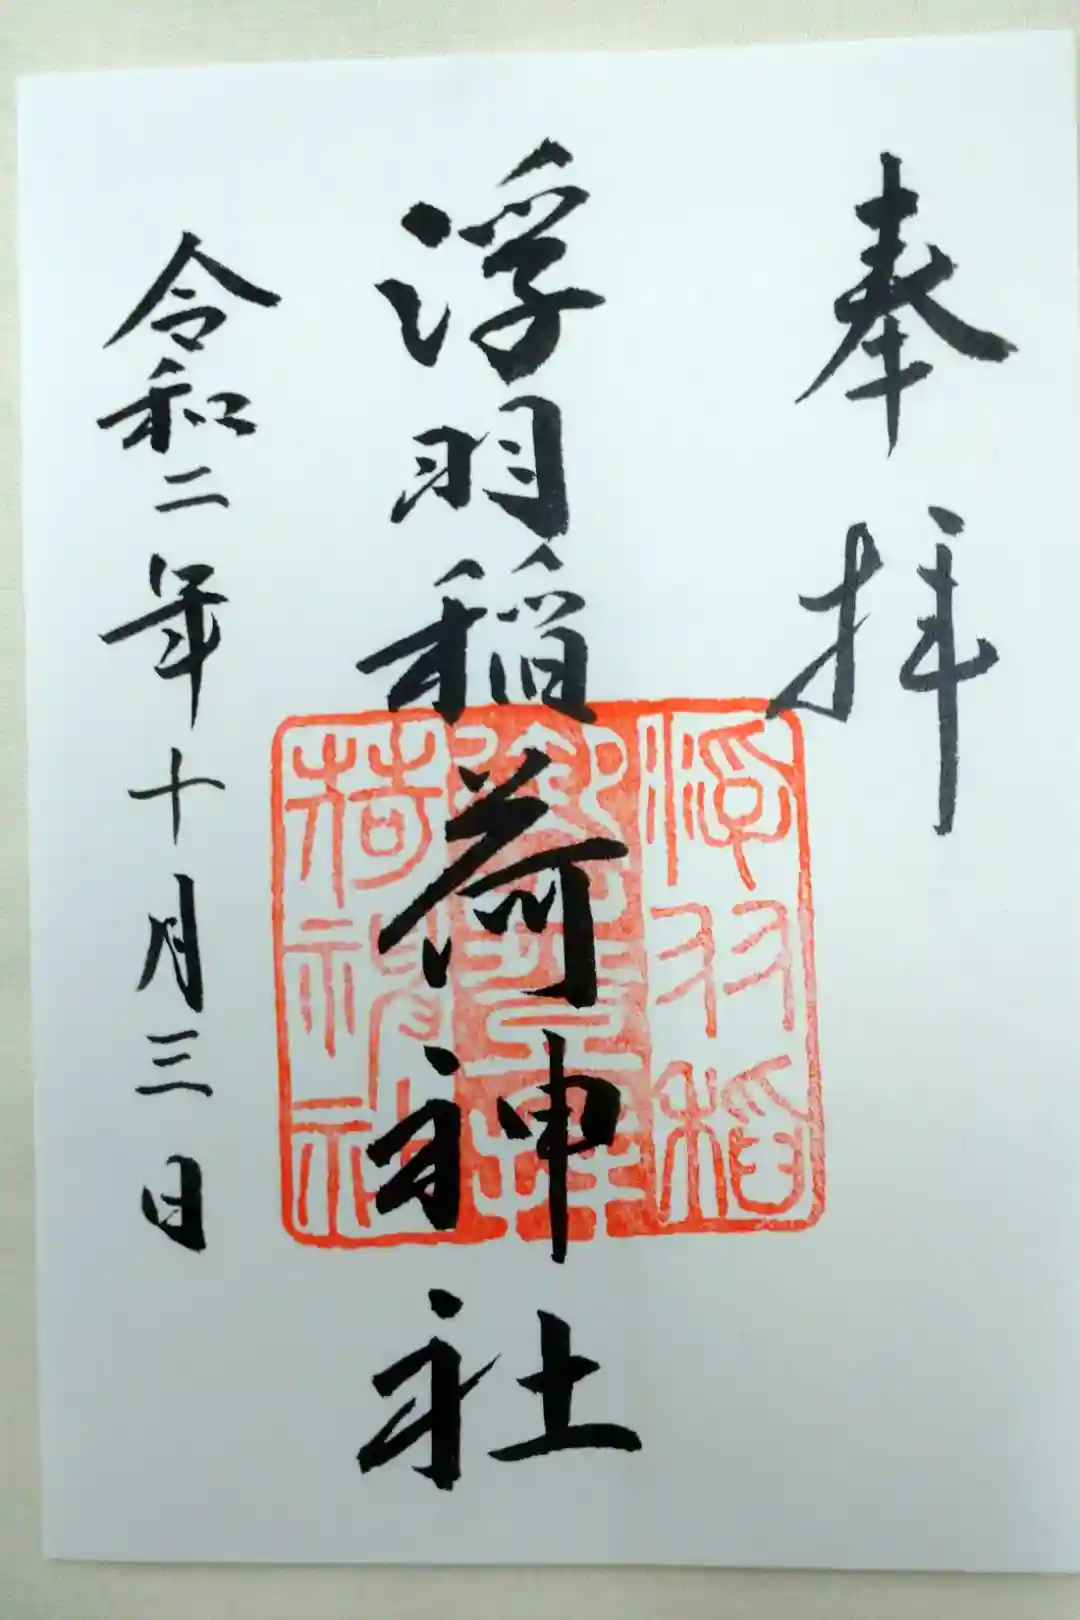 奉拝
浮羽稲荷神社
浮羽稲
荷神社
令和二年十月三日